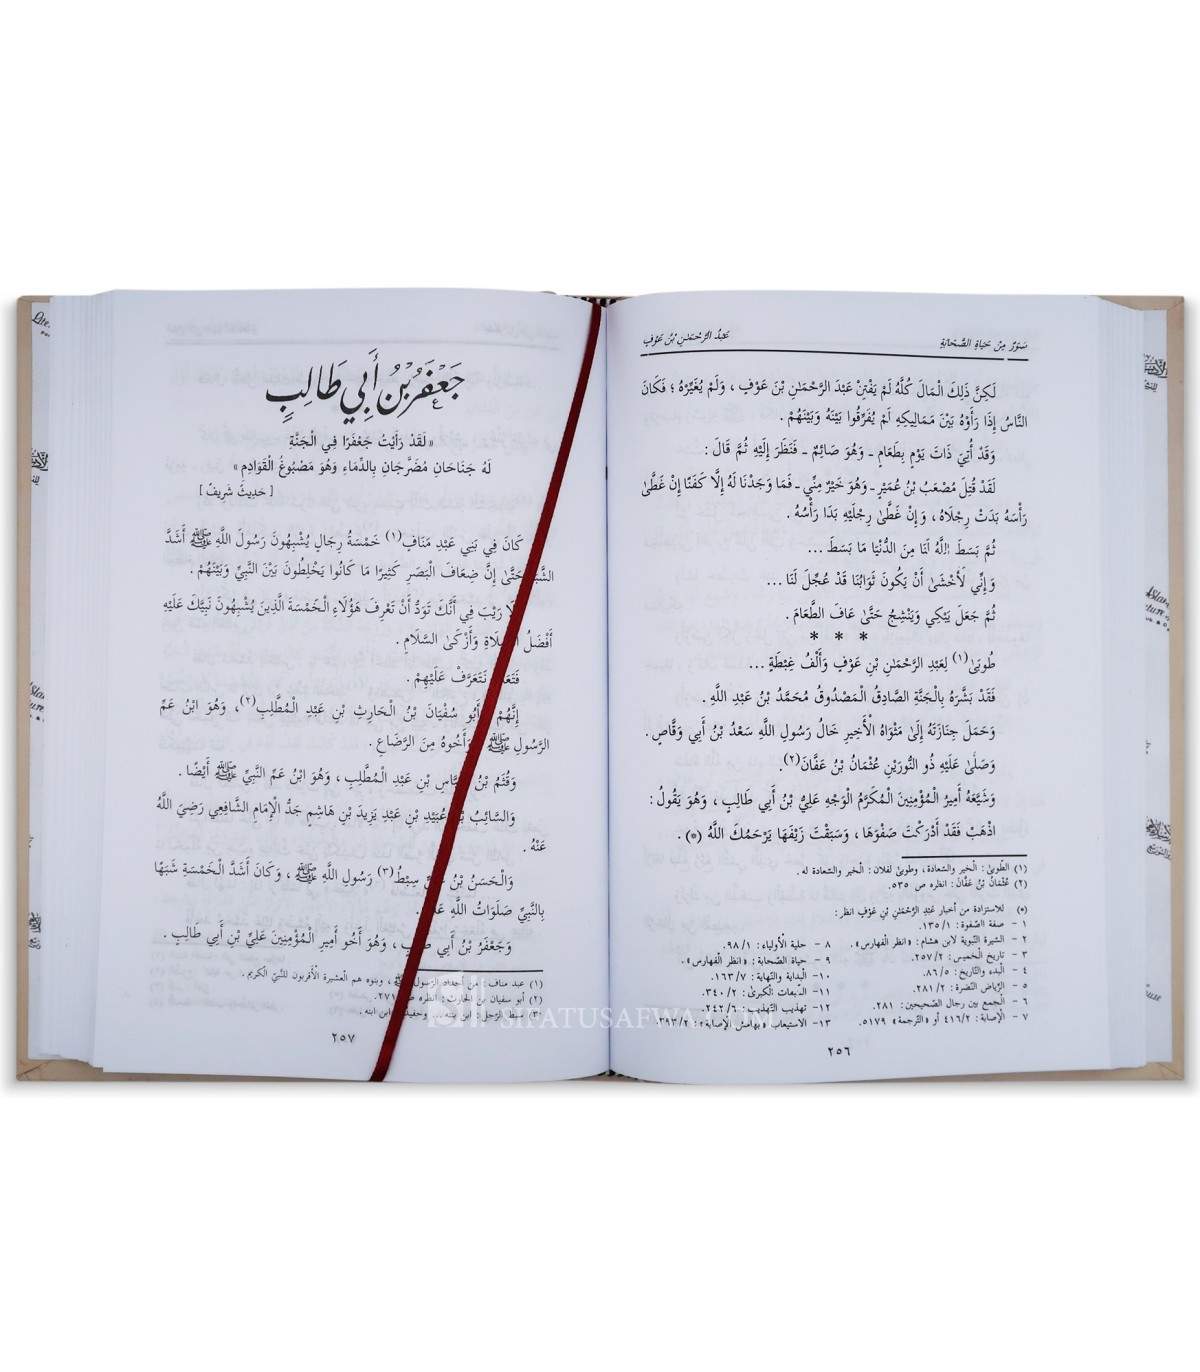 صُوَرٌ مِنْ حَيَاةِ الصَّحَابَةِ
عَبْدُ الرَّحْمٰنِ بْنُ عَوْفٍ
لَكِنَّ ذَلِكَ الْمَالَ كُلَّهُ لَمْ يَفْتِنْ عَبْدَ الرَّحْمٰنِ بْنَ عَوْفٍ ، وَلَمْ يُغَيِّرْهُ ؛ فَكَانَ
النَّاسُ إِذَا رَأَوْهُ بَيْنَ مَمَالِيكِهِ لَمْ يُفَرِّقُوا بَيْنَهُ وَبَيْنَهُمْ .
وَقَدْ أُتِيَ ذَاتَ يَوْمٍ بِطَعَامٍ ـ وَهُوَ صَائِمٌ ـ فَنَظَرَ إِلَيْهِ ثُمَّ قَالَ :
لَقَدْ قُتِلَ مُصْعَبُ بْنُ عُمَيْرٍ ـ وَهُوَ خَيْرٌ مِنِّي ـ فَمَا وَجَدْنَا لَهُ إِلَّا كَفَنًا إِنْ غَطَّىٰ
رَأْسَهُ بَدَتْ رِجْلَاهُ ، وَإِنْ غَطَّىٰ رِجْلَيْهِ بَدَا رَأْسُهُ .
ثُمَّ بَسَطَ اللَّهُ لَنَا مِنَ الدُّنْيَا مَا بَسَطَ ...
وَإِنِّي لَأَخْشَىٰ أَنْ يَكُونَ ثَوَابُنَا قَدْ عُجِّلَ لَنَا ...
ثُمَّ جَعَلَ يَبْكِي وَيَنْشِجُ حَتَّىٰ عَافَ الطَّعَامَ .
* * *
طُوبَىٰ (١) لِعَبْدِ الرَّحْمٰنِ بْنِ عَوْفٍ وَأَلْفُ غِبْطَةٍ ...
فَقَدْ بَشَّرَهُ بِالْجَنَّةِ الصَّادِقُ الْمَصْدُوقُ مُحَمَّدُ بْنُ عَبْدِ اللَّهِ .
وَحَمَلَ جِنَازَتَهُ إِلَىٰ مَثْوَاهُ الْأَخِيرِ خَالُ رَسُولِ اللَّهِ سَعْدُ بْنُ أَبِي وَقَّاصٍ .
وَصَلَّىٰ عَلَيْهِ ذُو النُّورَيْنِ عُثْمَانُ بْنُ عَفَّانَ (٢) .
وَشَيَّعَهُ أَمِيرُ الْمُؤْمِنِينَ الْمُكَرَّمُ الْوَجْهِ عَلِيُّ بْنُ أَبِي طَالِبٍ ، وَهُوَ يَقُولُ :
اذْهَبْ فَقَدْ أَدْرَكْتَ صَفْوَهَا ، وَسَبَقْتَ زَيْفَهَا يَرْحَمُكَ اللَّهُ (*) .
(١) الطّوبىٰ : الْخير والسّعادة ، وطوبىٰ لفلان : الْخير والسّعادة له .
(٢) عُثْمَانُ بْنُ عَفَّانَ : انظره ص ٥٣٥ .
(*) للاستزادة من أخبار عَبْدِ الرَّحْمٰنِ بْنِ عَوْفٍ انظر :
١ – صفة الصّفوة : ١٣٥/١ .
٢ – السّيرة النّبوية لابن هشام : « انظر الفهارس » .
٣ – تاريخ الْخميس : ٢٥٧/٢ .
٤ – الْبدء والتّاريخ : ٨٦/٥ .
٥ – الرّياض النّضرة : ٢٨١/٢ .
٦ – الْجمع بين رجال الصّحيحين : ٢٨١ .
٧ – الْإصابة : ٤١٦/٢ أو « التّرجمة » ٥١٧٩ .
٨ – حلية الْأولياء : ٩٨/١ .
٩ – حياة الصّحابة : « انظر الْفهارس » .
١٠ – الْبداية والنّهاية : ١٦٣/٧ .
١١ – الطّبقات الْكبرىٰ : ٣٤٠/٢ .
١٢ – تهذيب التّهذيب : ٢٤٢/٦ .
١٣ – الاستيعاب « بهامش الْإصابة » : ٣٩٣/٢ .
٢٥٦
جَعْفَرُ بْنُ أَبِي طَالِبٍ
« لَقَدْ رَأَيْتُ جَعْفَرًا فِي الْجَنَّةِ
لَهُ جَنَاحَانِ مُضَرَّجَانِ بِالدِّمَاءِ وَهُوَ مَصْبُوغُ الْقَوَادِمِ »
[ حَدِيثٌ شَرِيفٌ ]
كَانَ فِي بَنِي عَبْدِ مَنَافٍ (١) خَمْسَةُ رِجَالٍ يُشْبِهُونَ رَسُولَ اللَّهِ ﷺ أَشَدَّ
حَتَّىٰ إِنَّ ضِعَافَ الْبَصَرِ كَثِيرًا مَا كَانُوا يَخْلِطُونَ بَيْنَ النَّبِيِّ وَبَيْنَهُمْ .
لَا رَيْبَ فِي أَنَّكَ تَوَدُّ أَنْ تَعْرِفَ هَؤُلَاءِ الْخَمْسَةَ الَّذِينَ يُشْبِهُونَ نَبِيَّكَ عَلَيْهِ
أَفْضَلُ الصَّلَاةِ وَأَزْكَىٰ السَّلَامِ .
نَتَعَرَّفْ عَلَيْهِمْ .
إِنَّهُمْ أَبُو سُفْيَانَ بْنُ الْحَارِثِ بْنِ عَبْدِ الْمُطَّلِبِ (٢) ، وَهُوَ ابْنُ عَمِّ
الرَّسُولِ ﷺ وَأَخُوهُ مِنَ الرَّضَاعِ .
وَقُثَمُ بْنُ الْعَبَّاسِ بْنِ عَبْدِ الْمُطَّلِبِ ، وَهُوَ ابْنُ عَمِّ النَّبِيِّ ﷺ أَيْضًا .
وَالسَّائِبُ بْنُ عُبَيْدِ بْنِ عَبْدِ يَزِيدَ بْنِ هَاشِمٍ جَدُّ الْإِمَامِ الشَّافِعِيِّ رَضِيَ اللَّهُ
عَنْهُ .
وَالْحَسَنُ بْنُ عَلِيٍّ سِبْطُ (٣) رَسُولِ اللَّهِ ﷺ ، وَكَانَ أَشَدَّ الْخَمْسَةِ شَبَهًا
بِالنَّبِيِّ صَلَوَاتُ اللَّهِ عَلَيْهِ .
وَجَعْفَرُ بْنُ أَبِي طَالِبٍ ، وَهُوَ أَخُو أَمِيرِ الْمُؤْمِنِينَ عَلِيِّ بْنِ أَبِي طَالِبٍ .
(١) عبد مناف : من أجداد الرّسول ﷺ ، وبنوه هم الْعشيرة الْأقربون للنّبيّ الْكريم .
(٢) أبو سفيان بن الْحارث : انظره ص ٢٧١ .
(٣) سبط الرّجل : وحفيده : ابن ابنه .
٢٥٧
SIFATUSAFWA.COM